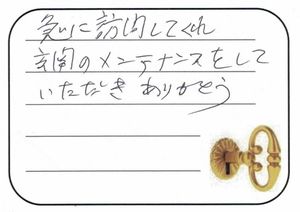 急に訪問してくれ
玄関のメンテナンスをして
いただきありがとう